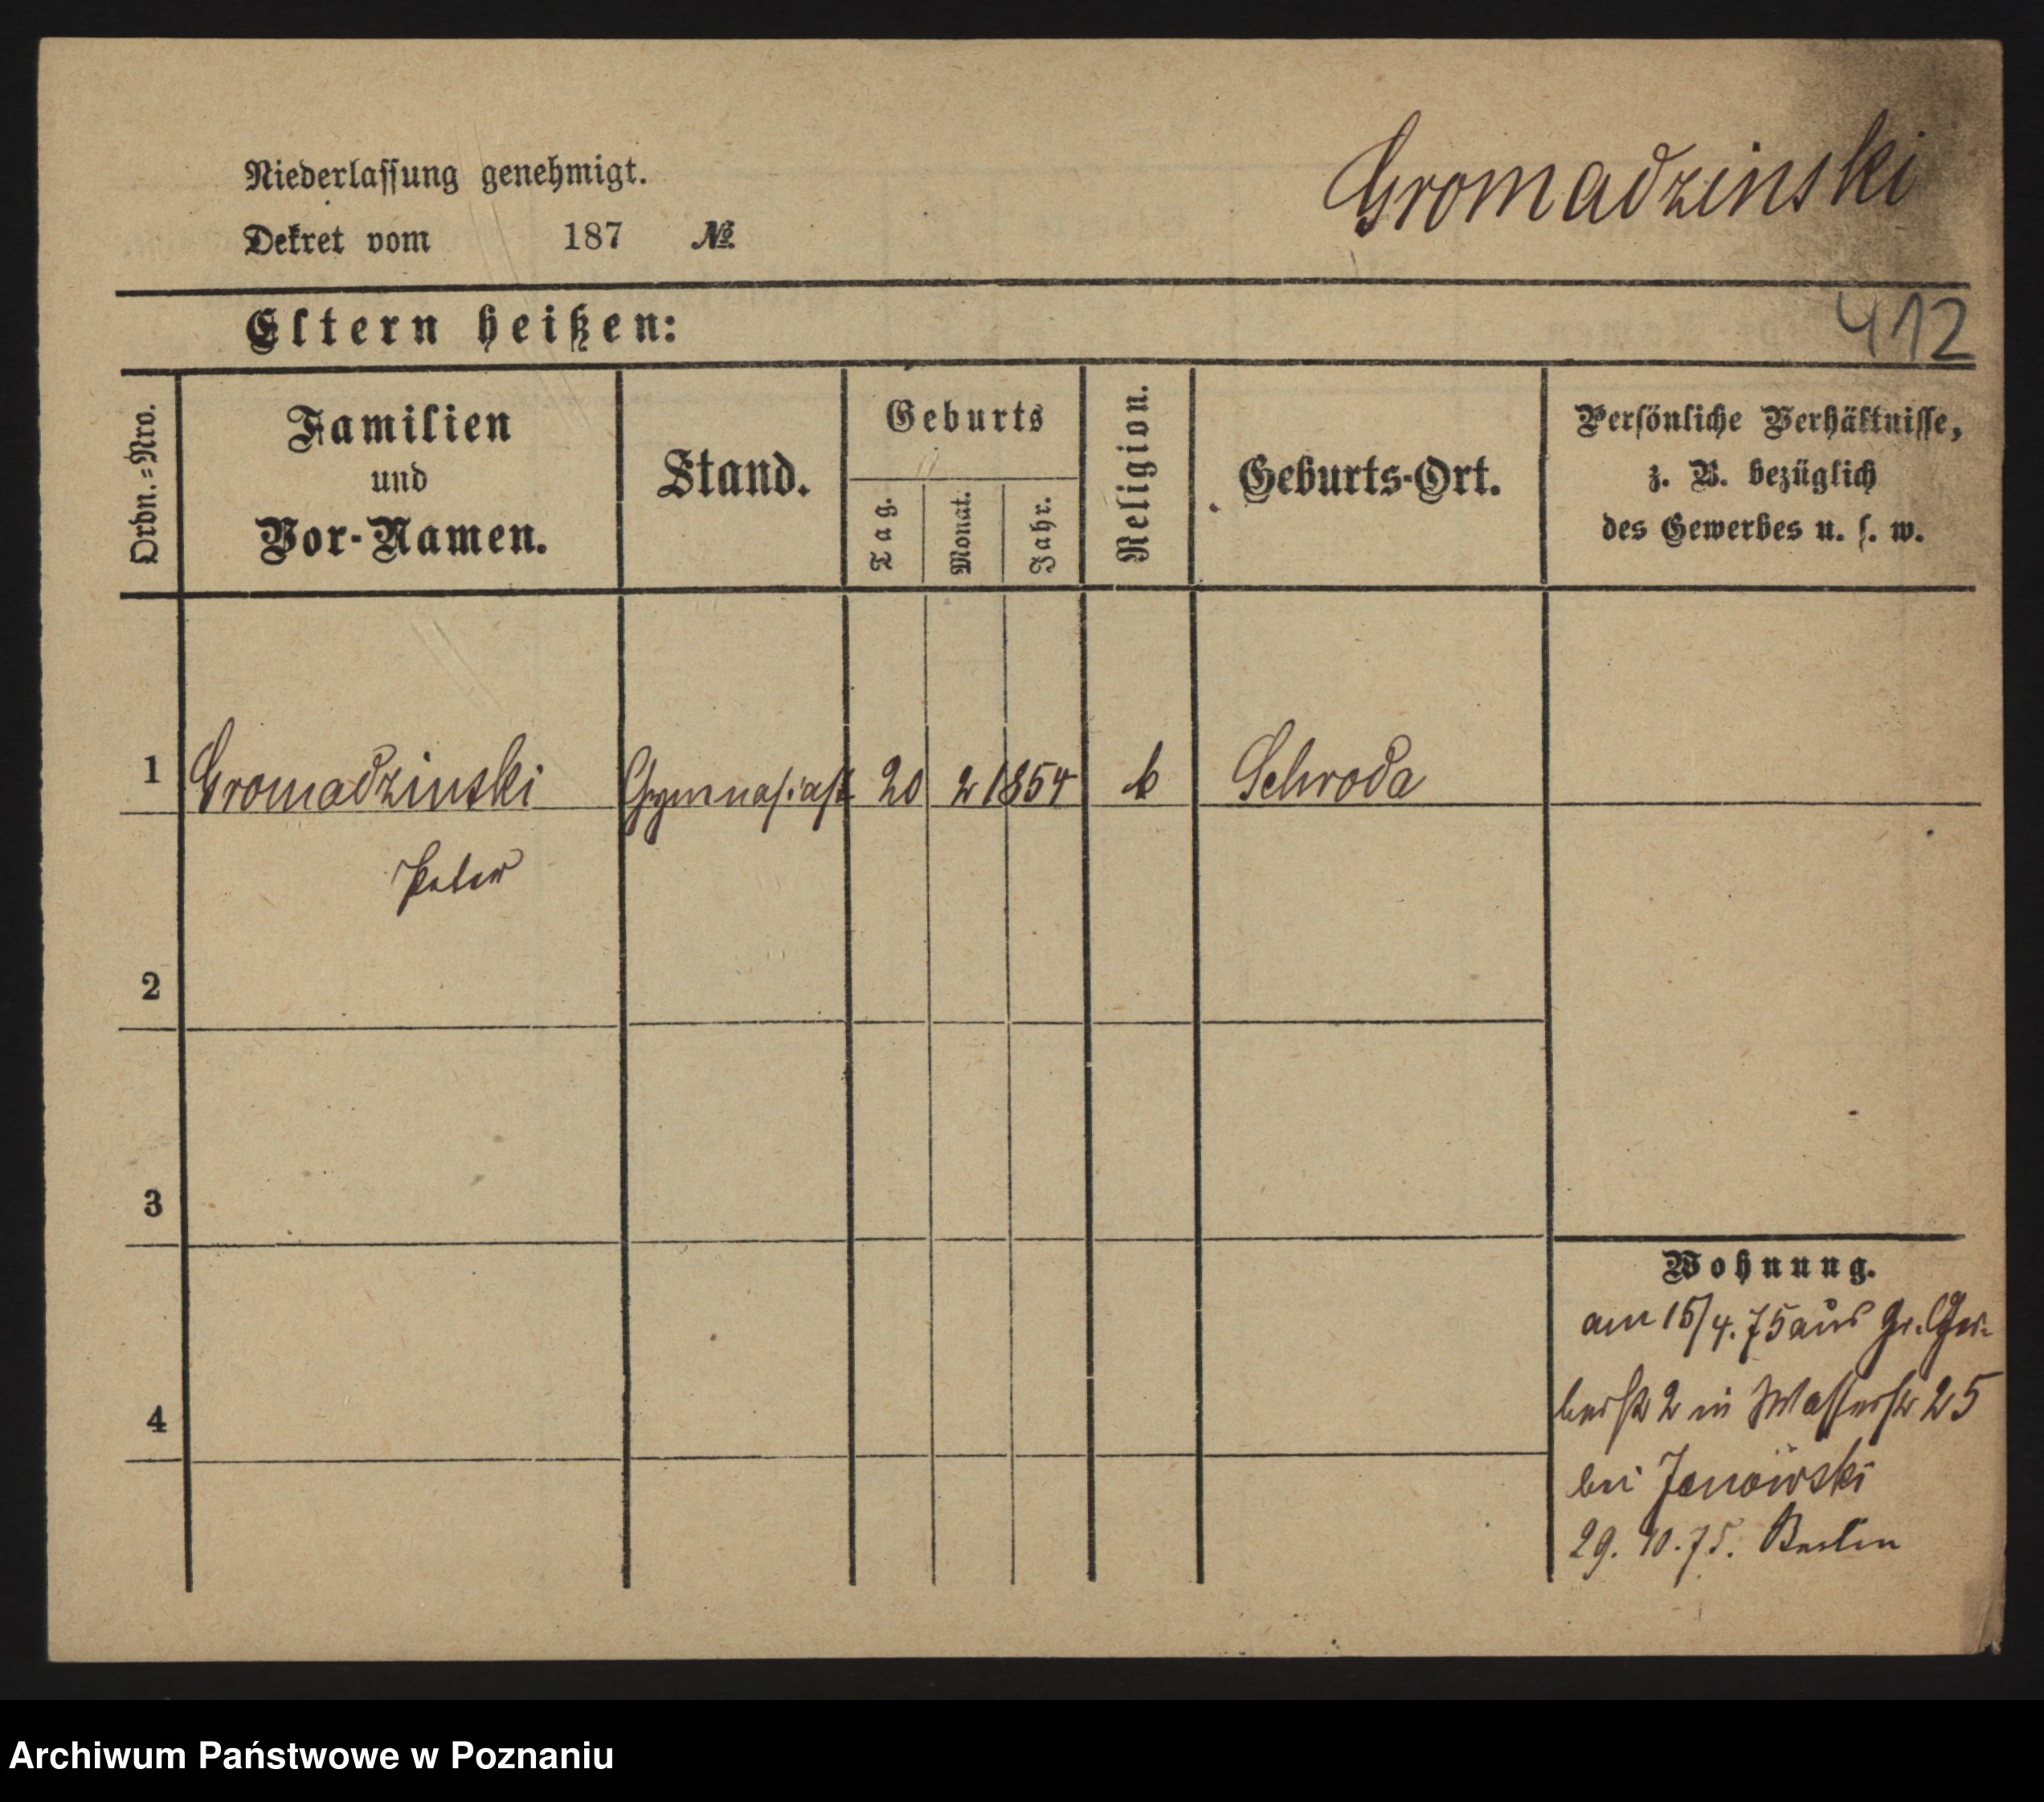 Niederlassung genehmigt.
Gromadzinski
Dekret vom 187 №
Eltern heißen:
412
Ordn.=Nro.
Familien
und
Vor-Namen.
Stand.
Geburts
Tag.
Monat.
Jahr.
Religion.
Geburts-Ort.
Persönliche Verhältnisse,
z. B. bezüglich
des Gewerbes u. s. w.
1 Gromadzinski Gymnasiast 20 2 1854 k Schroda
Peter
2
3
4
Wohnung.
am 15/4.75 aus Gr. Ger-
berstr 2 in Wasserstr 25
bei Janowski
29. 10. 75. Berlin
Archiwum Państwowe w Poznaniu